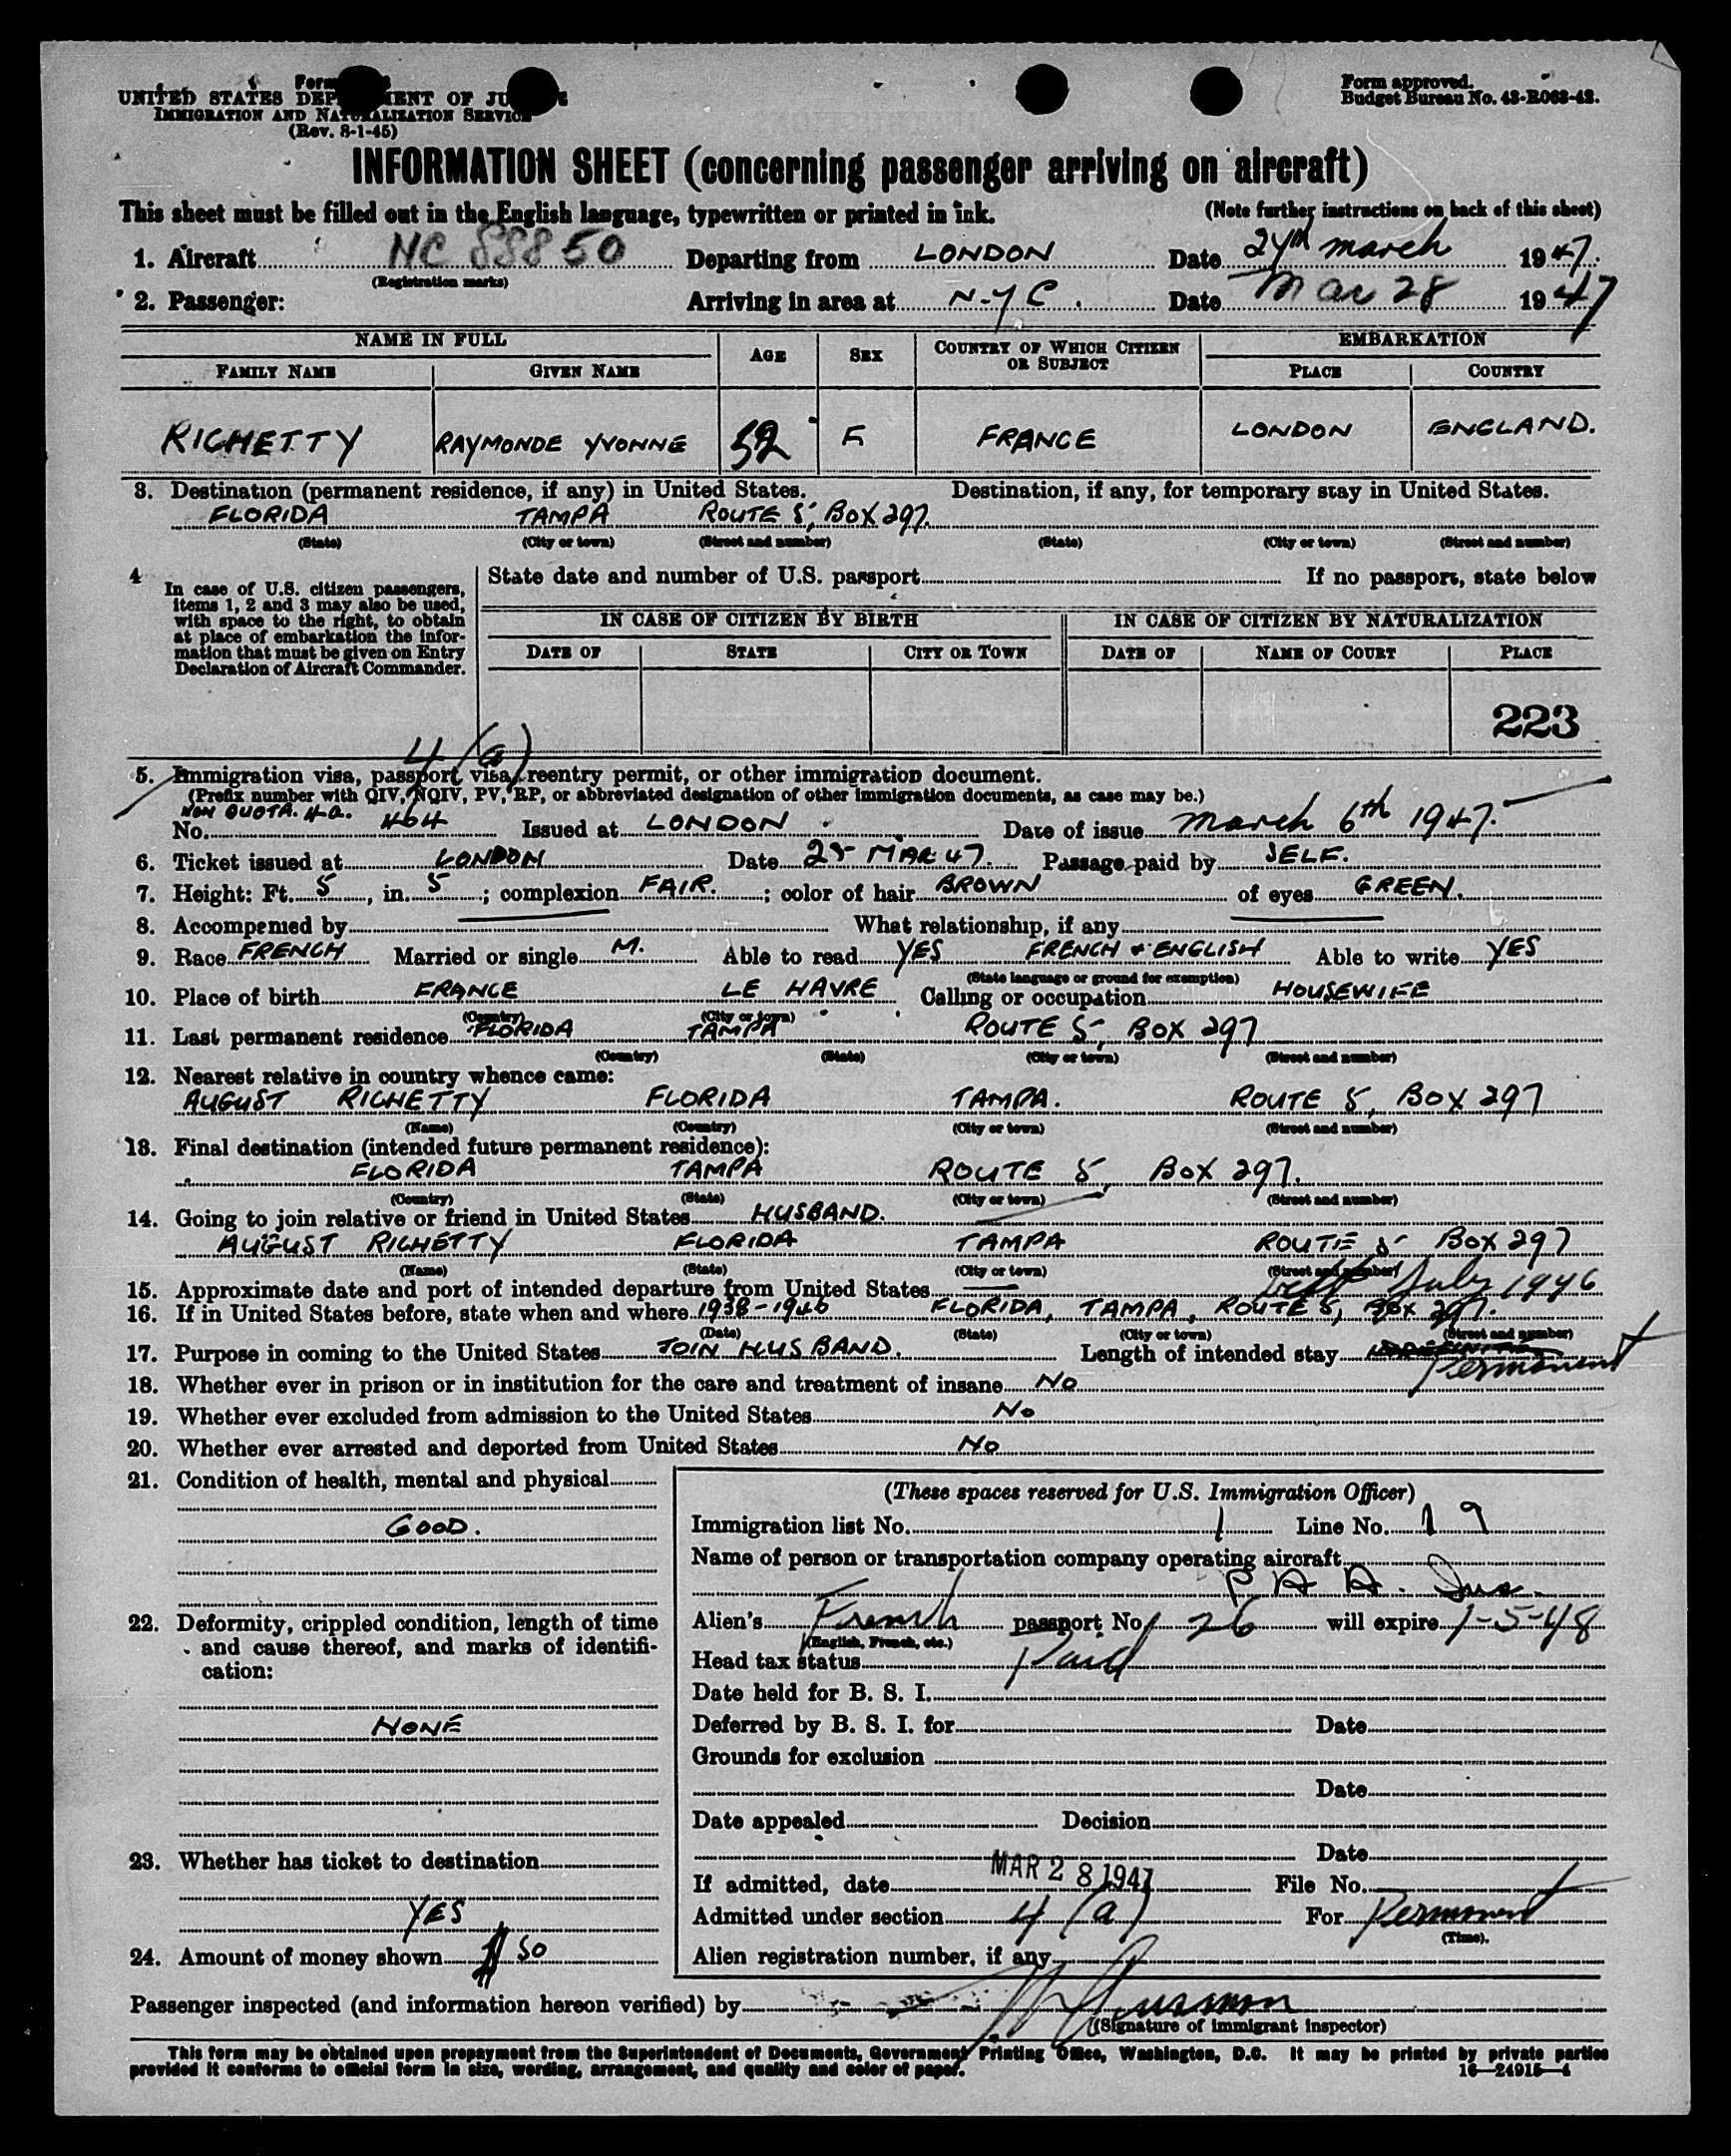 Form
UNITED STATES DEPARTMENT OF JUSTICE
IMMIGRATION AND NATURALIZATION SERVICE
(Rev. 8-1-45)
Form approved.
Budget Bureau No. 43-R063-42.
INFORMATION SHEET (concerning passenger arriving on aircraft)
This sheet must be filled out in the English language, typewritten or printed in ink. (Note further instructions on back of this sheet)
1. Aircraft NC 88850 Departing from LONDON Date 27th march 1947.
(Registration marks)
2. Passenger: Arriving in area at N-Y C. Date Mar 28 1947
NAME IN FULL AGE SEX COUNTRY OF WHICH CITIZEN OR SUBJECT EMBARKATION
FAMILY NAME GIVEN NAME PLACE COUNTRY
RICHETTY RAYMONDE YVONNE 52 F FRANCE LONDON ENGLAND.
3. Destination (permanent residence, if any) in United States. Destination, if any, for temporary stay in United States.
FLORIDA TAMPA ROUTE 5, BOX 297.
(State) (City or town) (Street and number) (State) (City or town) (Street and number)
4 In case of U.S. citizen passengers, items 1, 2 and 3 may also be used, with space to the right, to obtain at place of embarkation the information that must be given on Entry Declaration of Aircraft Commander.
State date and number of U.S. passport If no passport, state below
IN CASE OF CITIZEN BY BIRTH IN CASE OF CITIZEN BY NATURALIZATION
DATE OF STATE CITY OR TOWN DATE OF NAME OF COURT PLACE
223
4 (a)
5. Immigration visa, passport visa, reentry permit, or other immigration document.
(Prefix number with QIV, NQIV, PV, RP, or abbreviated designation of other immigration documents, as case may be.)
NON QUOTA. 4a.
No. 464 Issued at LONDON Date of issue march 6th 1947.
6. Ticket issued at LONDON Date 25 MAR 47. Passage paid by SELF.
7. Height: Ft. 5, in. 5; complexion FAIR.; color of hair BROWN of eyes GREEN.
8. Accompenied by What relationship, if any
9. Race FRENCH Married or single M. Able to read YES FRENCH + ENGLISH Able to write YES
(State language or ground for exemption)
10. Place of birth FRANCE LE HAVRE Calling or occupation HOUSEWIFE
(Country) (City or town)
11. Last permanent residence FLORIDA TAMPA ROUTE 5, BOX 297
(Country) (State) (City or town) (Street and number)
12. Nearest relative in country whence came:
AUGUST RICHETTY FLORIDA TAMPA. ROUTE 5, BOX 297
(Name) (Country) (City or town) (Street and number)
13. Final destination (intended future permanent residence):
FLORIDA TAMPA ROUTE 5, BOX 297.
(Country) (State) (City or town) (Street and number)
14. Going to join relative or friend in United States HUSBAND.
AUGUST RICHETTY FLORIDA TAMPA ROUTE 5 BOX 297
(Name) (State) (City or town) (Street and number)
15. Approximate date and port of intended departure from United States left July 1946
16. If in United States before, state when and where 1938-1946 FLORIDA, TAMPA, ROUTE 5, BOX 297.
(Date) (State) (City or town) (Street and number)
17. Purpose in coming to the United States JOIN HUSBAND. Length of intended stay Permanent
18. Whether ever in prison or in institution for the care and treatment of insane NO
19. Whether ever excluded from admission to the United States NO
20. Whether ever arrested and deported from United States NO
21. Condition of health, mental and physical
GOOD.
22. Deformity, crippled condition, length of time and cause thereof, and marks of identification:
NONE
23. Whether has ticket to destination
YES
24. Amount of money shown $ 50
(These spaces reserved for U.S. Immigration Officer)
Immigration list No. 1 Line No. 19
Name of person or transportation company operating aircraft
P A A. Inc.
Alien's French passport No. 26 will expire 1-5-48
(English, French, etc.)
Head tax status Paid
Date held for B. S. I.
Deferred by B. S. I. for Date
Grounds for exclusion
Date
Date appealed Decision
Date
If admitted, date MAR 28 1947 File No.
Admitted under section 4 (a) For Permanent
(Time).
Alien registration number, if any
Passenger inspected (and information hereon verified) by
(Signature of immigrant inspector)
This form may be obtained upon prepayment from the Superintendent of Documents, Government Printing Office, Washington, D.C. It may be printed by private parties
provided it conforms to official form in size, wording, arrangement, and quality and color of paper. 16—24915—4